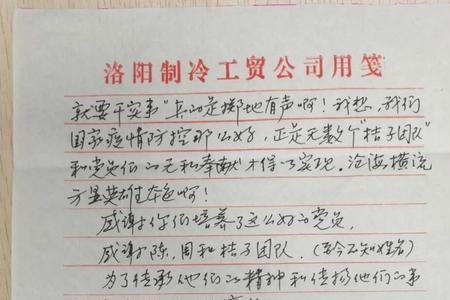 洛阳制冷工贸公司用笺
就要干实事"真是掷地有声啊！我想，我们
国家疫情防控那么好，正是无数个"桔子团队"
和党员们的无私奉献才得以实现。沧海横流
方显英雄本色啊！
感谢你们培养了这么好的党员，
感谢陈、周和桔子团队。（至今不知姓名）
为了传承他们的精神和传扬他们的事